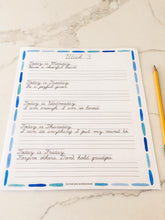 Week 3
Today is Monday.
Have a cheerful heart.
Today is Tuesday.
Be a joyful giver.
Today is Wednesday.
I am enough. I am so loved.
Today is Thursday.
I can do anything I put my mind to.
Today is Friday.
Forgive others. Don't hold grudges.